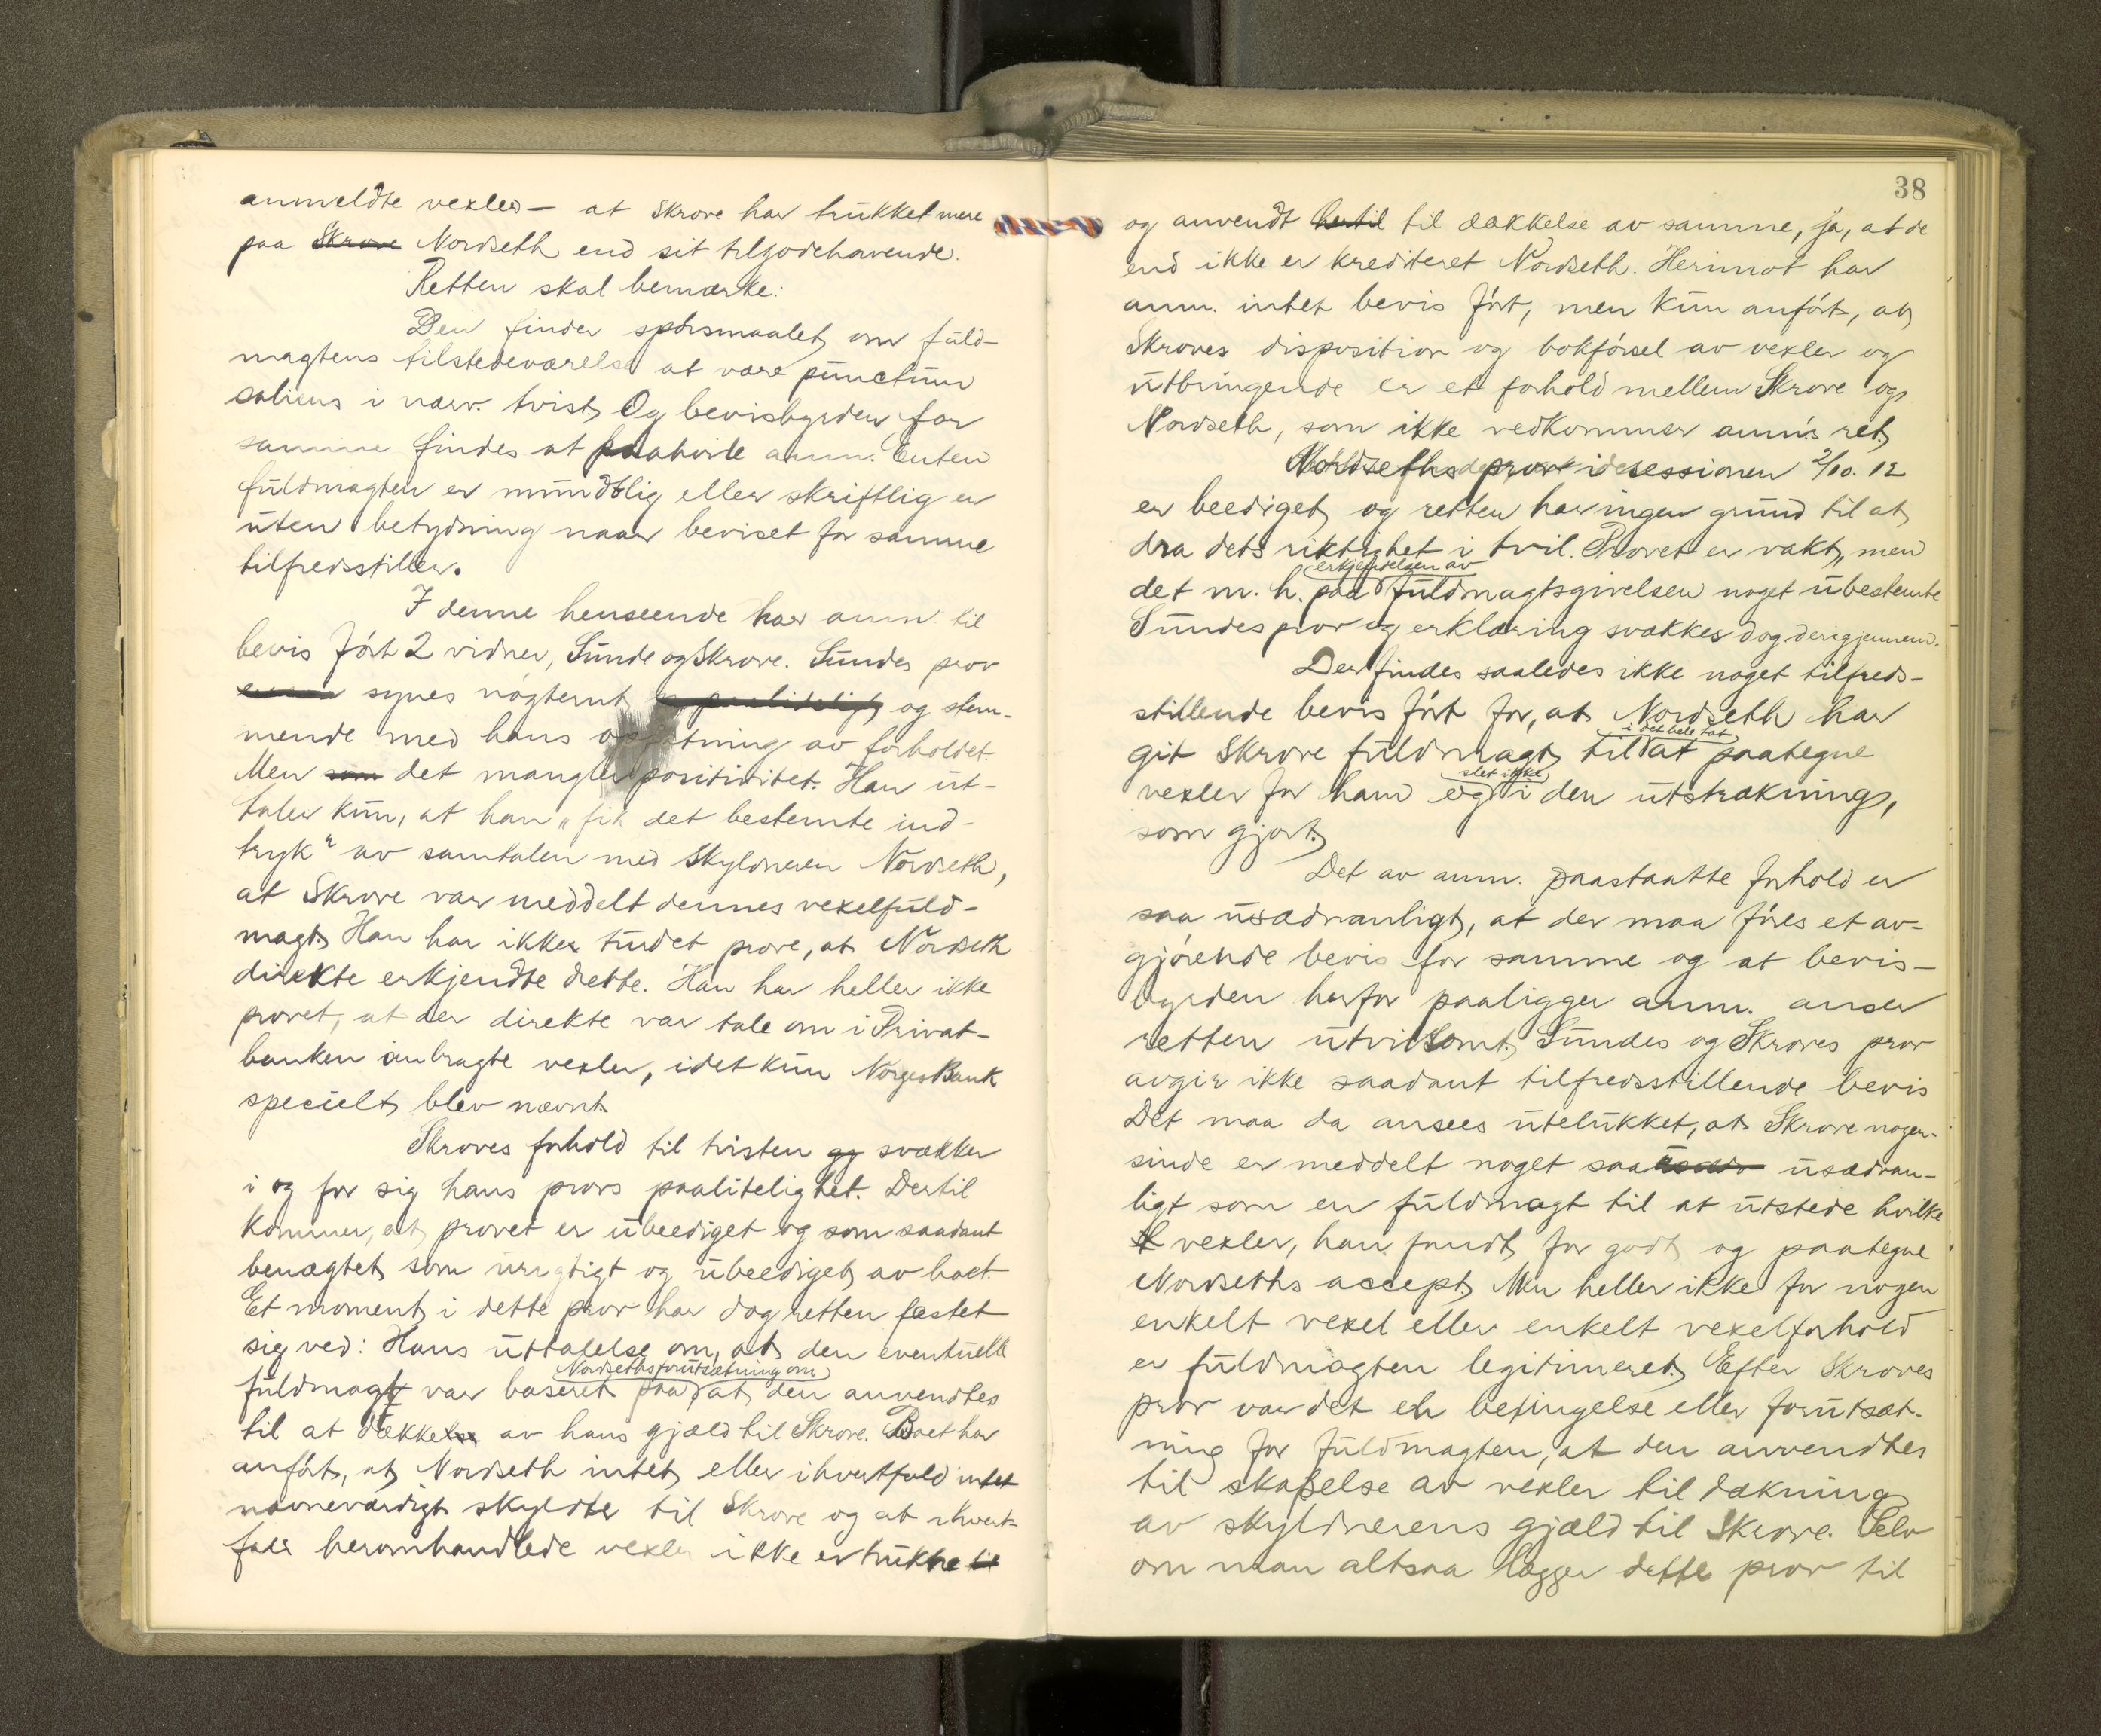 anmeldte vexler — at Skrove har trukket mere
paa Skrove Nordseth end sit tilgodehavende.
Retten skal bemærke:
Den finder spørsmaalet om fuld-
magtens tilstedeværelse at være punctum
saliens i nærv. tvist. Og bevisbyrden for
samme findes at paahvile anm. Enten
fuldmagten er mundtlig eller skriftlig er
uten betydning naar beviset for samme
tilfredsstiller.
I denne henseende har anm til
bevis ført 2 vidner, Sunde og Skrove. Sundes prov
synes nøgternt og paalideligt og stem-
mende med hans opfatning av forholdet.
Men som det mangler positivitet. Han ut-
taler kun, at han „fik det bestemte ind-
tryk" av samtalen med skyldneren Nordseth,
at Skrove var meddelt dennes vexelfuld-
magt. Han har ikke turdet prove, at Nordseth
direkte erkjendte dette. Han har heller ikke
provet, at der direkte var tale om i Privat-
banken anbragte vexler, idet kun Norges Bank
specielt blev nævnt.
Skroves forhold til tvisten og svækker
i og for sig hans provs paalitelighet. Dertil
kommer, at provet er ubeediget og som saadant
benægtet som urigtigt og ubeediget av boet.
Et moment i dette prov har dog retten fæstet
sig ved: Hans uttalelse om, at den eventuelle
Nordseths forutsætning om
fuldmagt var baseret paa at den anvendtes
til at dækkelse av hans gjæld til Skrove. Boet har
anført, at Nordseth intet eller ihvertfald intet
nævneværdigt skyldte til Skrove og at ihvert-
fald heromhandlede vexler ikke er trukne til
38
og anvendt hertil til dækkelse av samme, ja, at de
end ikke er krediteret Nordseth. Herimot har
anm. intet bevis ført, men kun anført, at
Skroves disposition og bokførsel av vexler og
utbringende er et forhold mellem Skrove og
Nordseth, som ikke vedkommer anm's ret.
Nordseths prov i sessionen 2/10. 12
er beediget og retten har ingen grund til at
dra dets riktighet i tvil. Provet er vakt, men
erkjendelsen av
det m. h. paa fuldmagtsgivelsen noget ubestemte
Sundes prov og erklæring svækkes dog derigjennem.
Der findes saaledes ikke noget tilfreds-
stillende bevis ført for, at Nordseth har
i det hele tat
git Skrove fuldmagt til at paategne
slet ikke
vexler for ham og i den utstrækning,
som gjort.
Det av anm. paastaatte forhold er
saa usædvanligt, at der maa føres et av-
gjørende bevis for samme og at bevis-
byrden herfor paaligger anm. anser
retten utvilsomt. Sundes og Skroves prov
avgir ikke saadant tilfredsstillende bevis
Det maa da ansees utelukket, at Skrove nogen-
sinde er meddelt noget saa usædv usædvan-
ligt som en fuldmagt til at utstede hvilke
vexler, han fandt for godt og paategne
Nordseths accept. Men heller ikke for nogen
enkelt vexel eller enkelt vexelforhold
er fuldmagten legitimeret. Efter Skroves
prov var det en betingelse eller forutsæt-
ning for fuldmagten, at den anvendtes
til skabelse av vexler til dækning
av skyldnerens gjæld til Skrove. Selv
om man altsaa lægger dette prov til